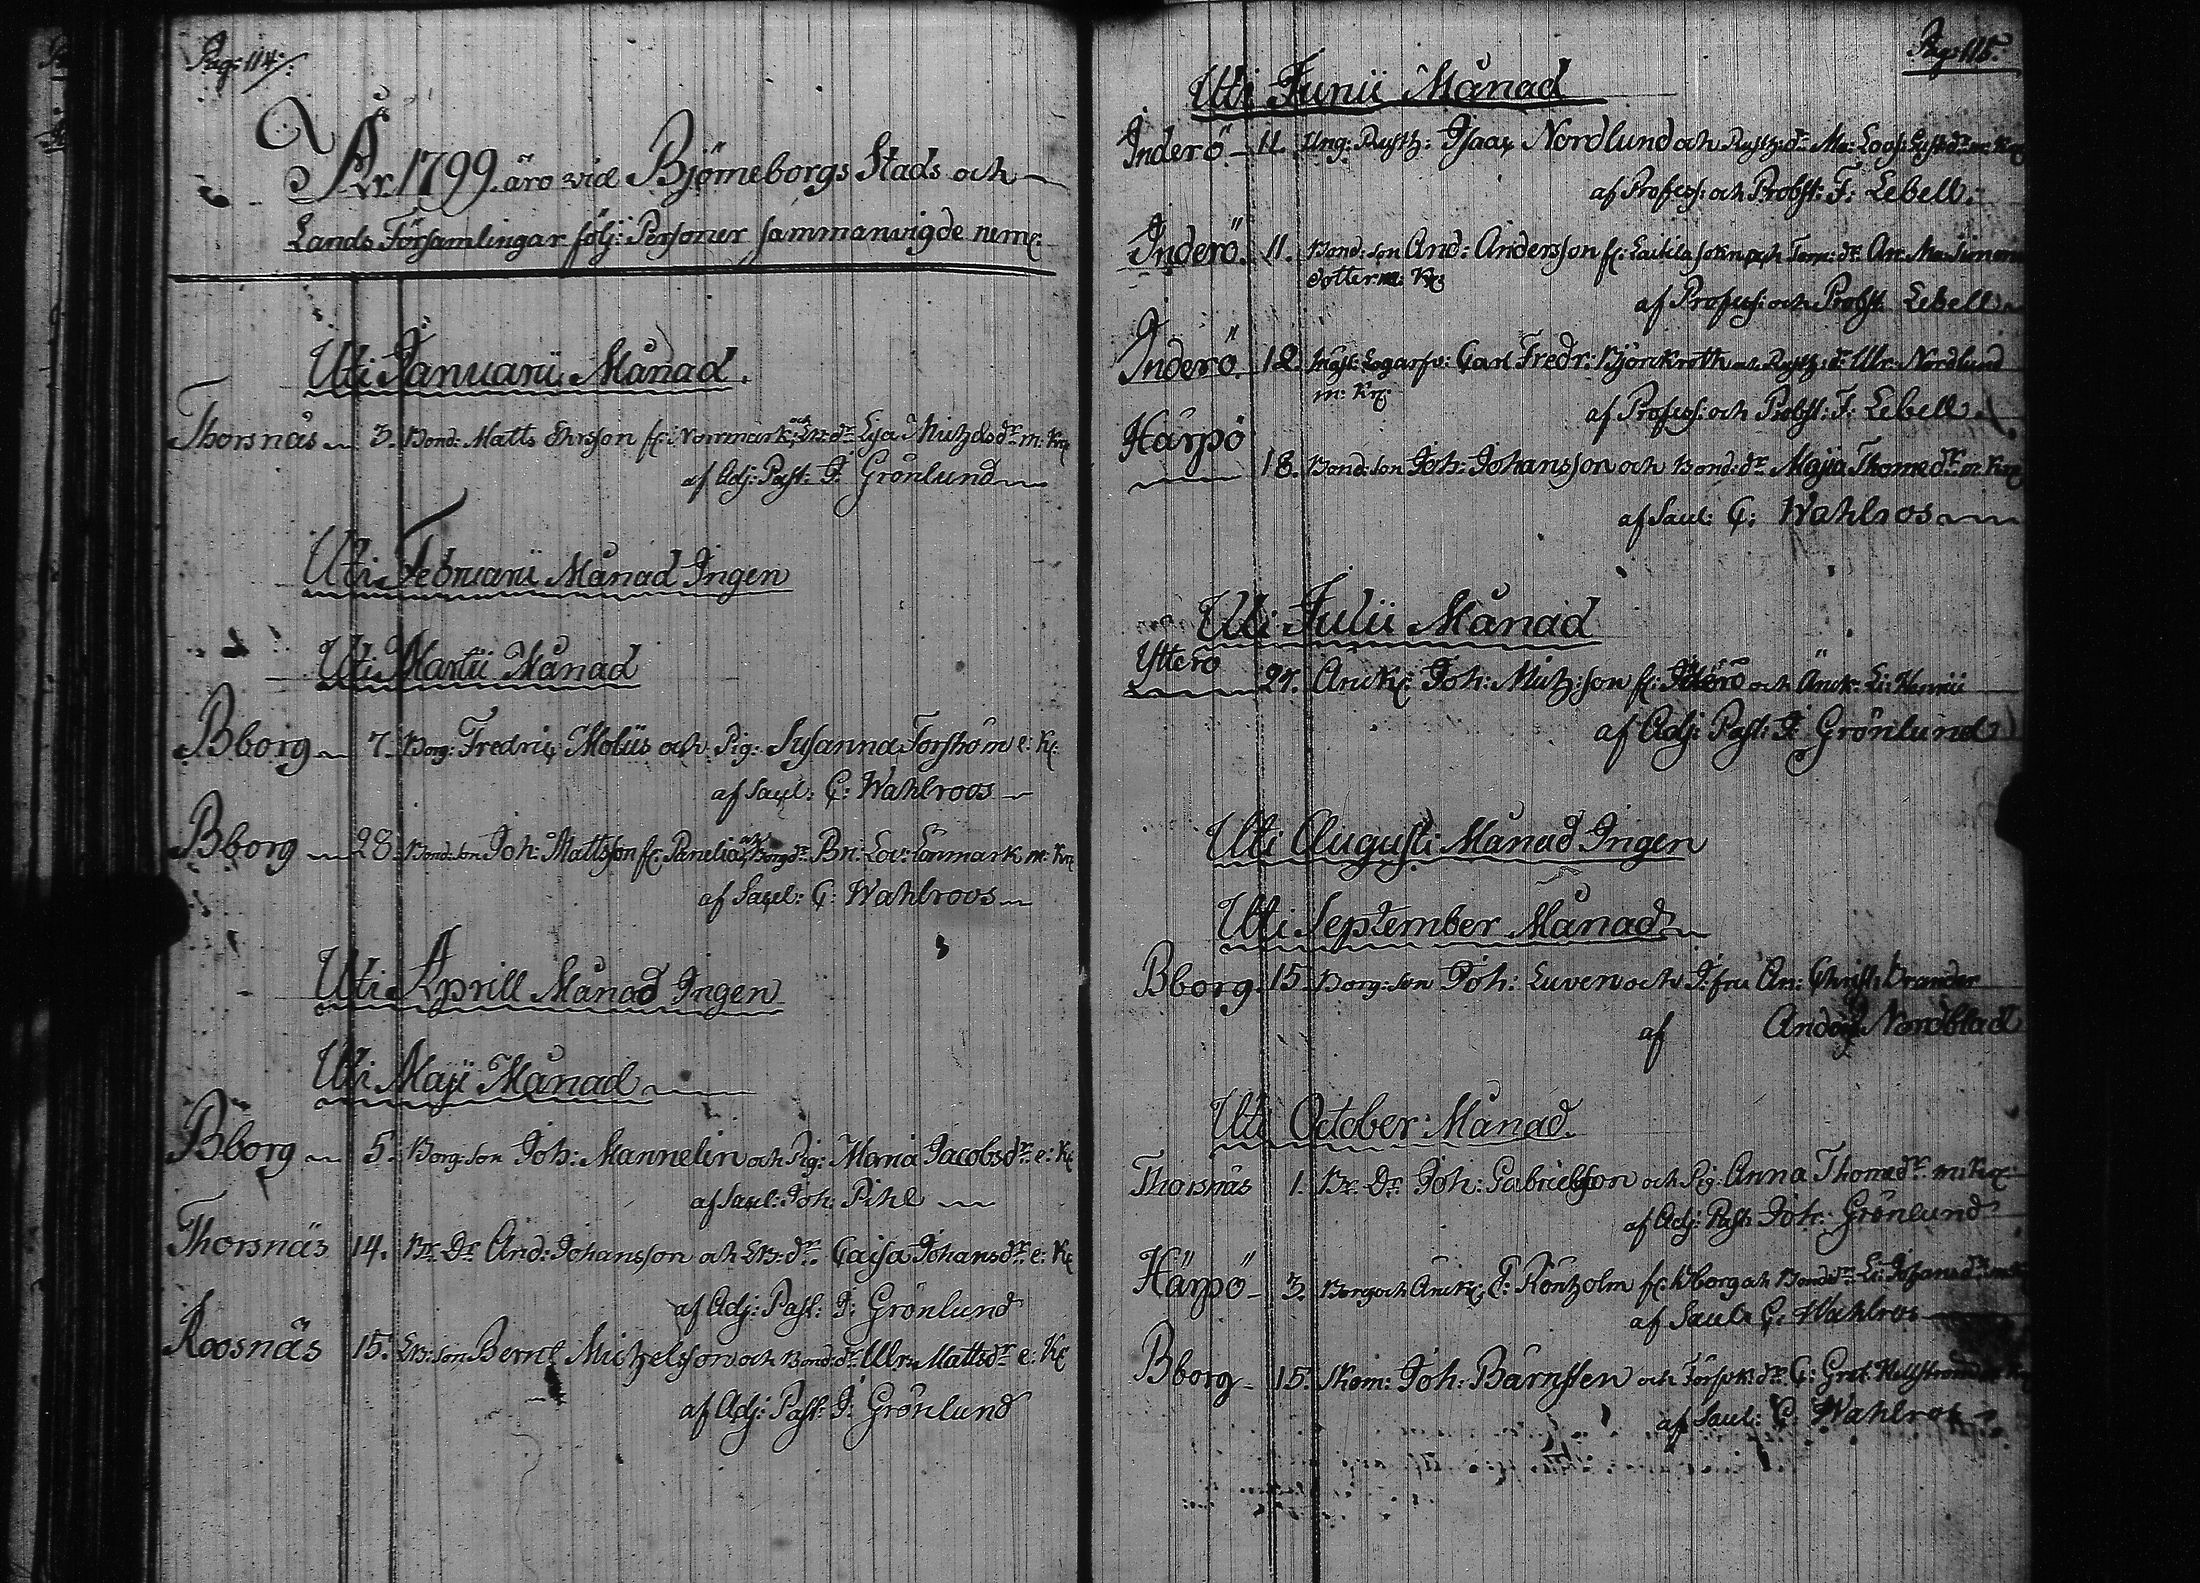 Pag: 114:
År 1799 äro vid Björneborgs Stads och
Lands Församlingar följ: Personer sammanvigde neml:
Uti Januarii Månad.
Thorsnäs 3. Bond: Matts Ersson fr: Norrmark, och dr Lisa Mitzelsdr m: Kr:
af Adj: Past: J: Grönlund
Uti Februarii Månad Ingen
Uti Martii Månad
Bborg 7. Borg: Fredric Molüs och Pig: Susanna Forsström e: K:
af Sacel: C: Wahlroos
Bborg 28. Bond: son Joh: Mattsson fr: Panelia och Borg: dr Br: Lov: Lönmark m: Kr:
af Sacel: C: Wahlroos
Uti Aprill Månad Ingen
Uti Maji Månad
Bborg 5. Borg: son Joh: Mannelin och Pig: Maria Jacobsdr e: K:
af Sacel: Joh: Pihl
Thorsnäs 14. Br: Dr And: Johansson och dr Caisa Johansdr e: K:
af Adj: Past: J: Grönlund
Roosnäs 15. son Bernt Mitzelsson och Bond: dr Ulr: Mattsdr e: K:
af Adj: Past: J: Grönlund
Pag: 115:
Uti Junii Månad
Inderö 11. Ung: Rusth: Isaac Nordlund och Rusth: dr Ma: Lovis:
af Profess: och Probst: F: Lebell
Inderö 11. Bond: son And: Andersson fr: Laitila sokn och Torp: dr An: Ma: Simons
dotter m: Kr:
af Profess: och Probst: Lebell
Inderö 12. Carl Fredr: Björckroth och Rusth: dr Ulr: Nordlund
m: Kr:
af Profess: och Probst: F: Lebell
Härpö
18. Bond: son Joh: Johansson och Bond: dr Maja Thomedr m: Kr:
af Sacel: C: Wahlroos
Uti Julii Månad
Ytterö
27. Anck: Joh: Mitz: son fr: och Änck: Li: Henrii
af Adj: Past: J: Grönlund
Uti Augusti Månad Ingen
Uti September Månad
Bborg 15. Borg: son Joh: Luven och J: fru An: Christ: Brander
af Nordblad
Uti October Månad.
Thorsnäs 1. Br: Dr: Joh: Gabrielsson och Pig: Anna Thomedr m: Kr:
af Adj: Past: Joh: Grönlund
Härpö 3. Borg och Anck: J: Röntzholm fr: Bborg och Bond: dr Li: Johansdr
af Sacel: C: Wahlros
Bborg 15. Skom: Joh: Bärnsten och dr C: Gret: Hellström
af Sacel: C: Wahlros